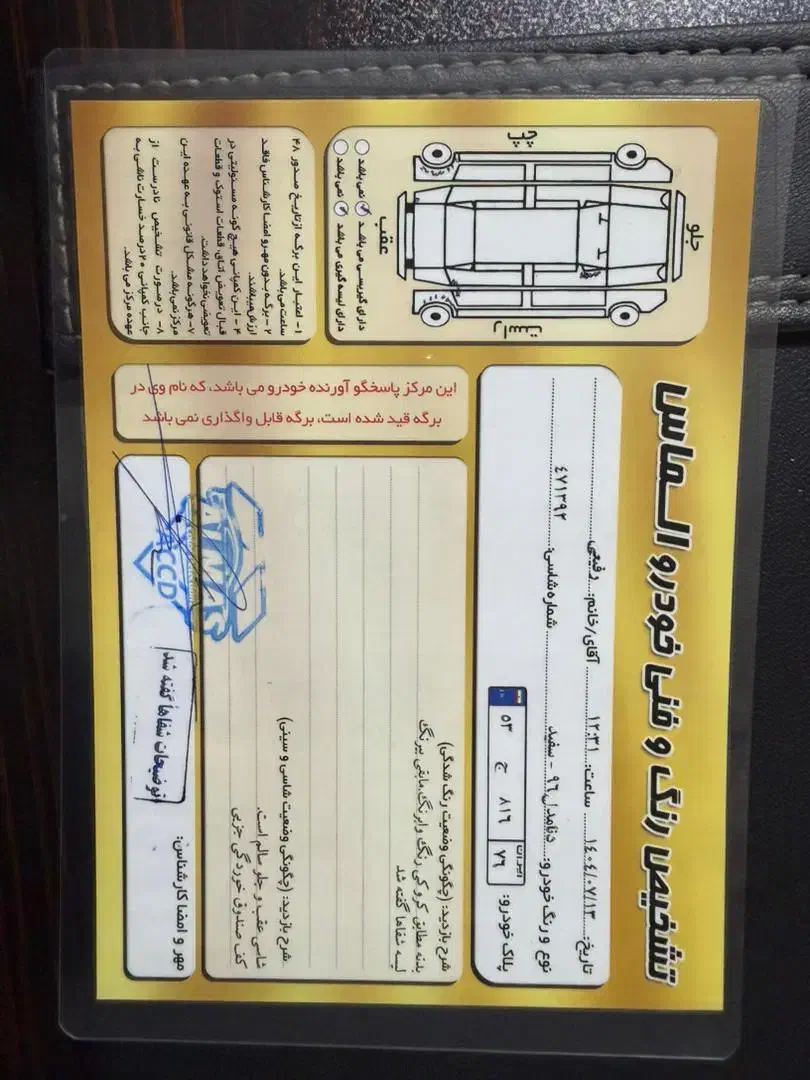 تشخیص رنگ و فنی خودرو الـماس
تاریخ: ۱۴۰۴/۰۷/۱۳ ساعت: ۱۲:۳۱ آقای/خانم: رفیعی
نوع و رنگ خودرو: دنامدل ۹۶ - سفید شماره شاسی: ٤٧١٣٩٢
پلاک خودرو: ۵۳ ج ۸۱۶ ایران ۷۶
شرح بازدید: (چگونگی وضعیت رنگ شدگی)
بدنه مطابق کروکی رنگ وابرنگ.مابقی بیرنگ
لیسه شفاها گفته شد
شرح بازدید: (چگونگی وضعیت شاسی و سینی)
شاسی عقب و جلو سالم است.
کف صندوق خوردگی جزیی
مهر و امضا کارشناس:
توضیحات شفاها گفته شد
ACCD
این مرکز پاسخگو آورنده خودرو می باشد، که نام وی در
برگه قید شده است، برگه قابل واگذاری نمی باشد
جلو
عقب
چپ
راست
دارای گیریسی می باشد نمی باشد
دارای لیسه گیری می باشد نمی باشد
۱- اعتبار این برگه ازتاریخ صدور ۴۸
ساعت می‌باشد.
۲- برگه بدون مهرو امضا کارشناس فاقد
ارزش میباشند.
۴- این کمپانی هیچ گونه مسئولیتی در
قبال تعویض اتاق، قطعات استوک و قطعات
تعویضی نخواهد داشت.
۷- هرگونه مشکل قانونی به عهده این
مرکز نمی باشد.
۸- درصورت تشخیص نادرست از
جانب کمپانی ۲۰درصد خسارت ناشی به
عهده مرکز می باشد.